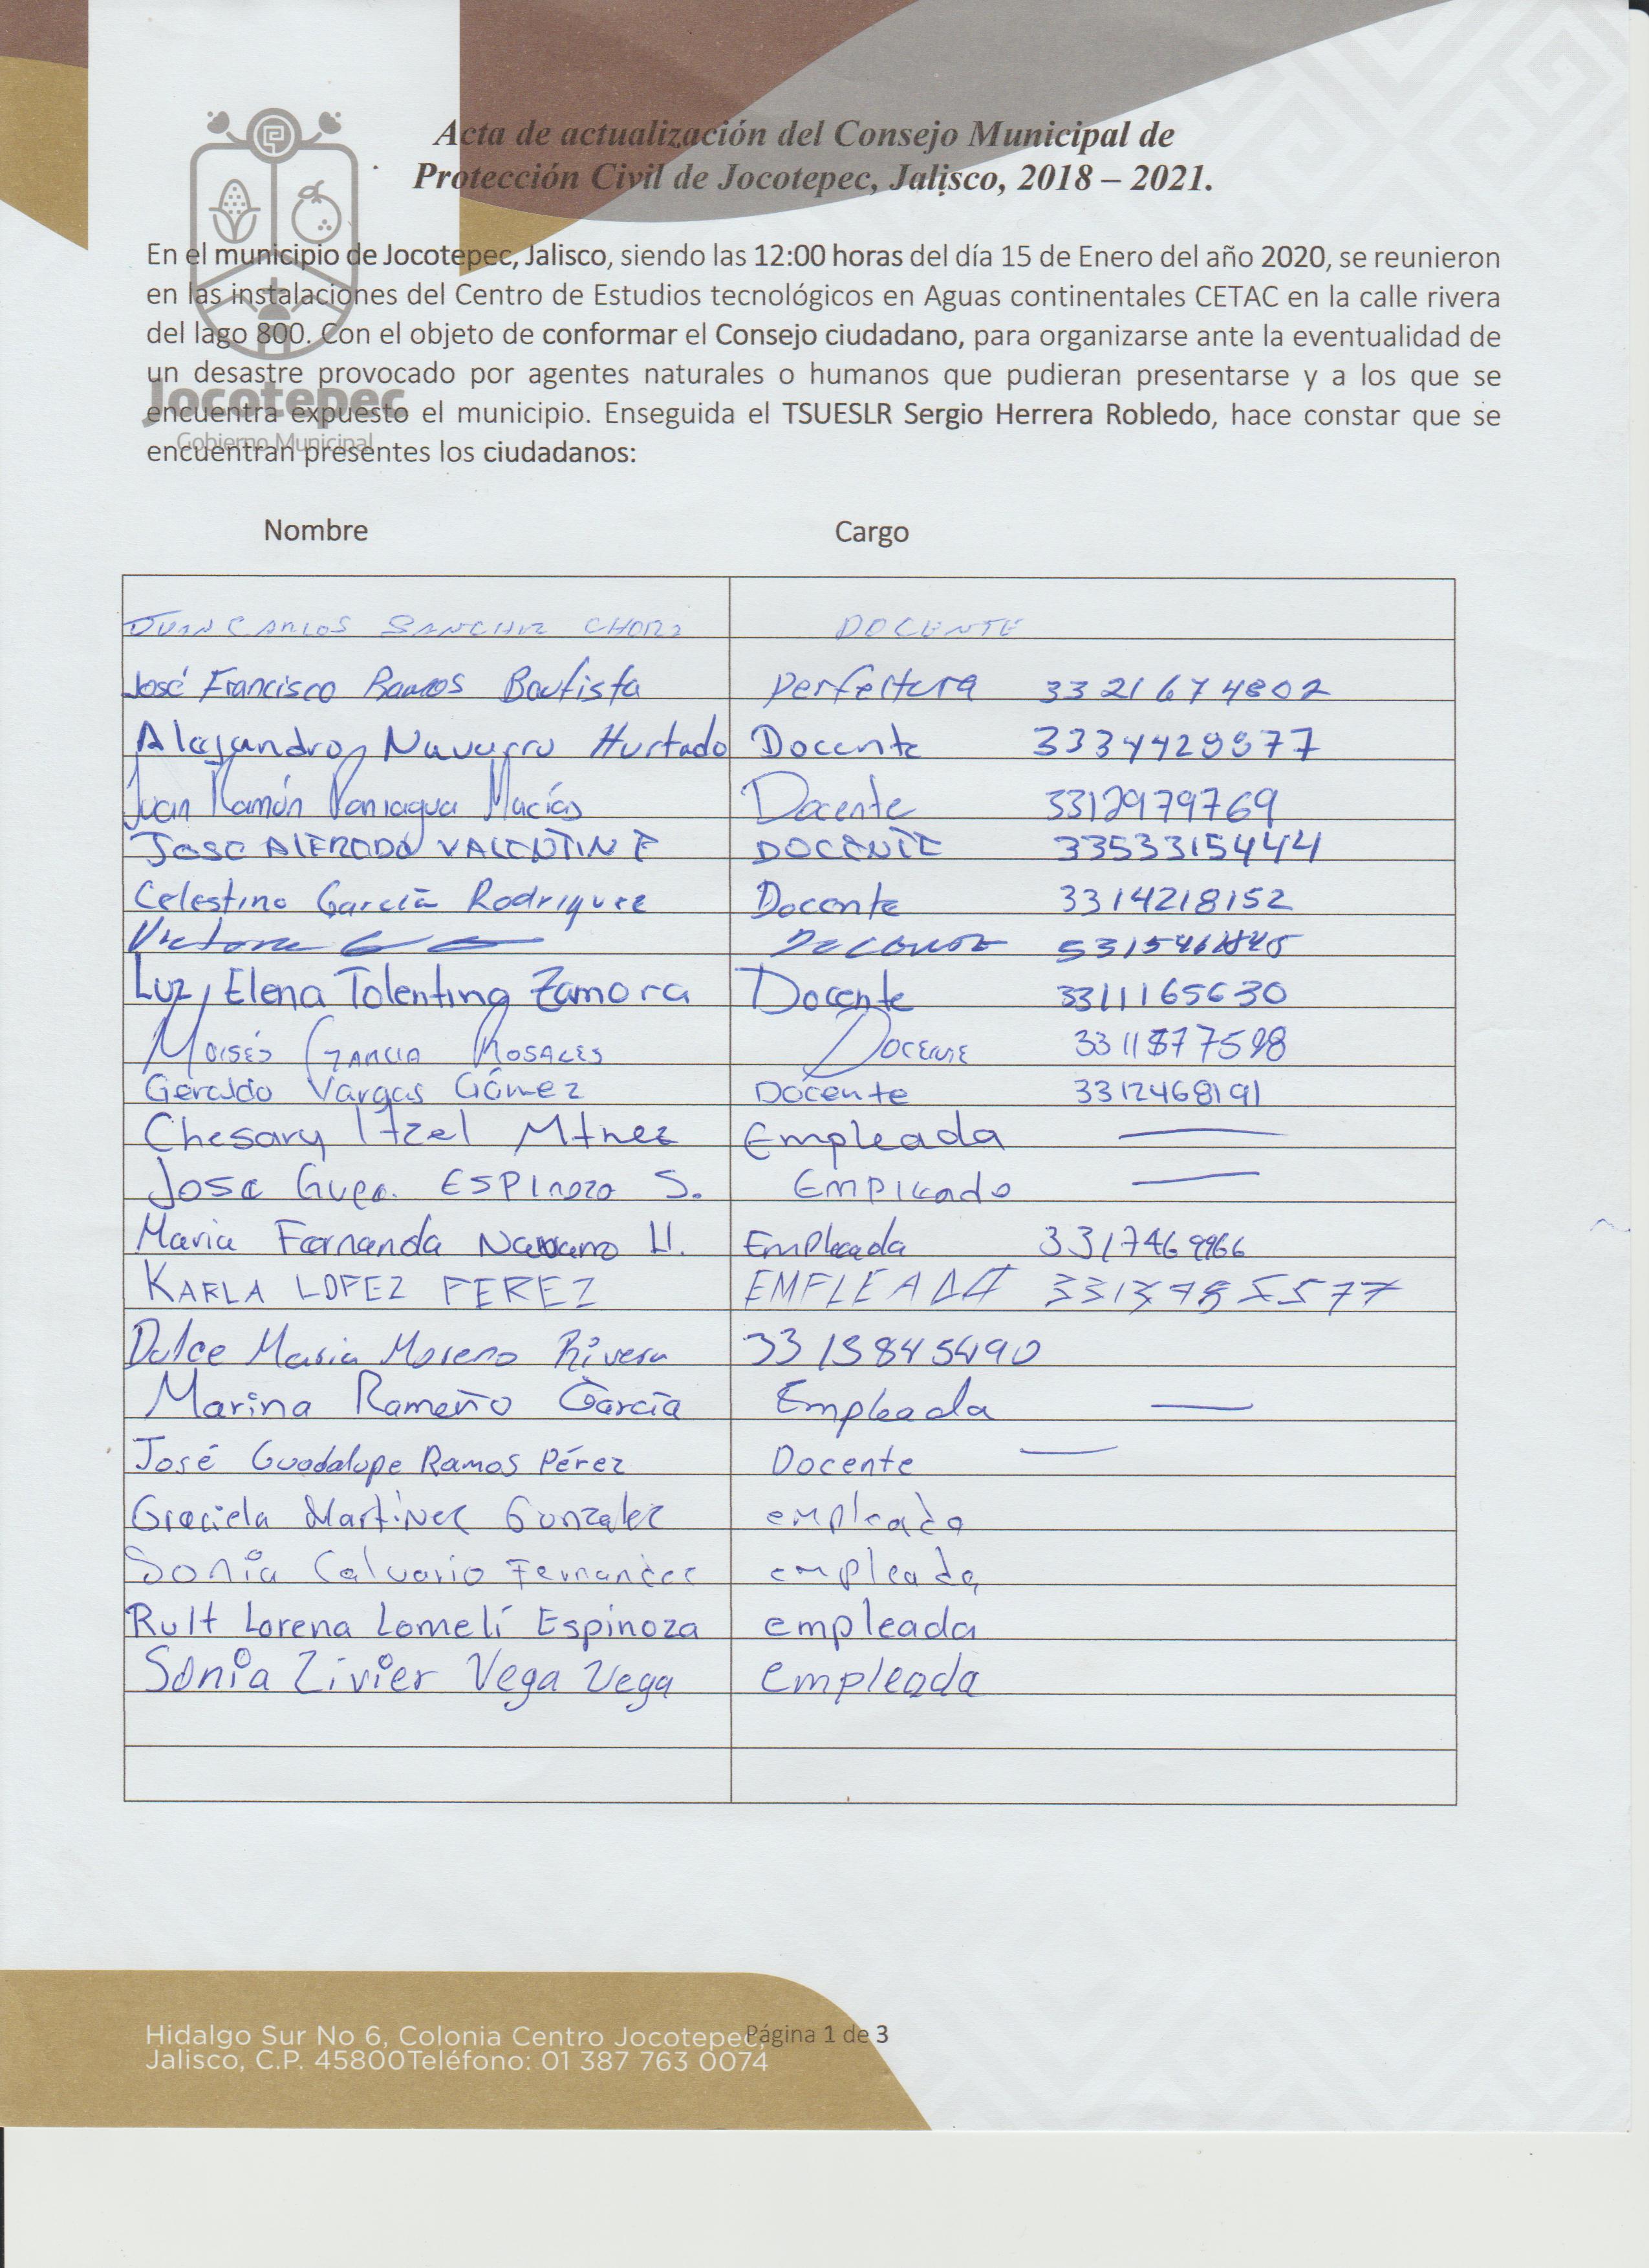 Acta de actualización del Consejo Municipal de
Protección Civil de Jocotepec, Jalisco, 2018 – 2021.
En el municipio de Jocotepec, Jalisco, siendo las 12:00 horas del día 15 de Enero del año 2020, se reunieron
en las instalaciones del Centro de Estudios tecnológicos en Aguas continentales CETAC en la calle rivera
del lago 800. Con el objeto de conformar el Consejo ciudadano, para organizarse ante la eventualidad de
un desastre provocado por agentes naturales o humanos que pudieran presentarse y a los que se
Jocotepec
encuentra expuesto el municipio. Enseguida el TSUESLR Sergio Herrera Robledo, hace constar que se
Gobierno Municipal
encuentran presentes los ciudadanos:
Nombre Cargo
JUAN CARLOS SANCHEZ DOCENTE
José Francisco Ramos Bautista Perfeitura 3321674802
Alejandro Navarro Hurtado Docente
Juan Ramón Paniagua Macías Docente 3312979769
JOSE VALENTIN DOCENTE 3353315444
Celestino García Rodriguez Docente 3314218152
Luz Elena Tolentino Zamora Docente 3311165630
MOISÉS GARCIA ROSALES DOCENTE
Geraldo Vargas Gómez Docente 3312468191
Chesary Itzel Mtnez Empleada
Jose Gupe. ESPINOZO S. Empleado
Maria Fernanda Navarro H. Empleada
KARLA LOPEZ PEREZ EMPLEADA
Dulce Maria Moreno Rivera 3313845490
Marina Rameño García Empleada
José Guadalupe Ramos Pérez Docente
Graciela Martinez Gonzalez empleada
Sonia Calvario Fernandez empleada
Rult Lorena Lomelí Espinoza empleada
Sonia Zivier Vega Vega Empleada
Hidalgo Sur No 6, Colonia Centro Jocotepec, Página 1 de 3
Jalisco, C.P. 45800Teléfono: 01 387 763 0074